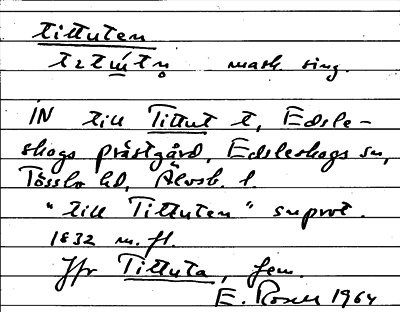 tittuten
tɪtút̩n̥ mask sing.
IN till Tittut t, Edsle-
skogs prästgård, Edsleskogs sn,
Tössbo hd, Älvsb. l.
"till Tittuten" snprot.
1832 m. fl.
Jfr Tittuta, fem.
E. Rosell 1964